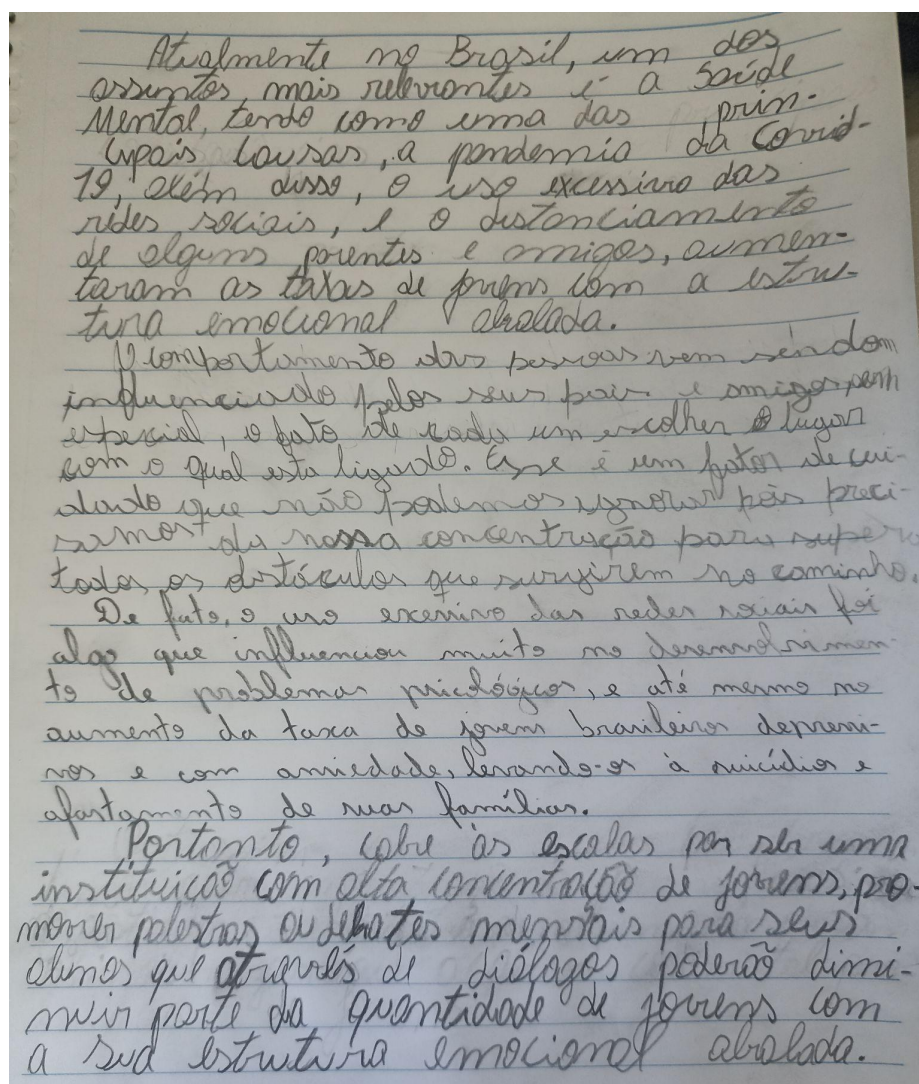 Atualmente no Brasil, um dos
assuntos, mais relevantes é a Saúde
Mental, tendo como uma das prin-
cipais causas, a pandemia da Covid-
19, além disso, o uso excessivo das
redes sociais, e o distanciamento
de alguns parentes e amigos, aumen-
taram as taxas de jovens com a estru-
tura emocional abalada.
O comportamento das pessoas vem sendo
influenciado pelos seus pais e amigos, em
especial, o fato de cada um escolher o lugar
com o qual esta ligado. Esse é um fator de cui-
dado que não podemos ignorar pois preci-
samos da nossa concentração para supera
todos os obstáculos que surgirem no caminho.
De fato, o uso excessivo das redes sociais foi
algo que influenciou muito no desenvolvimen-
to de problemas psicológicos, e até mesmo no
aumento da taxa de jovem brasileiros depressi-
vos e com ansiedade, levando-os à suicídios e
afastamento de suas famílias.
Portanto, cabe às escolas por ser uma
instituição com alta concentração de jovens, pro-
mover palestras ou debates mensais para seus
alunos que através de diálogos poderão dimi-
nuir parte da quantidade de jovens com
a sua estrutura emocional abalada.